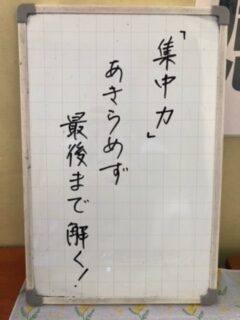 「集中力」
あきらめず
最後まで解く!